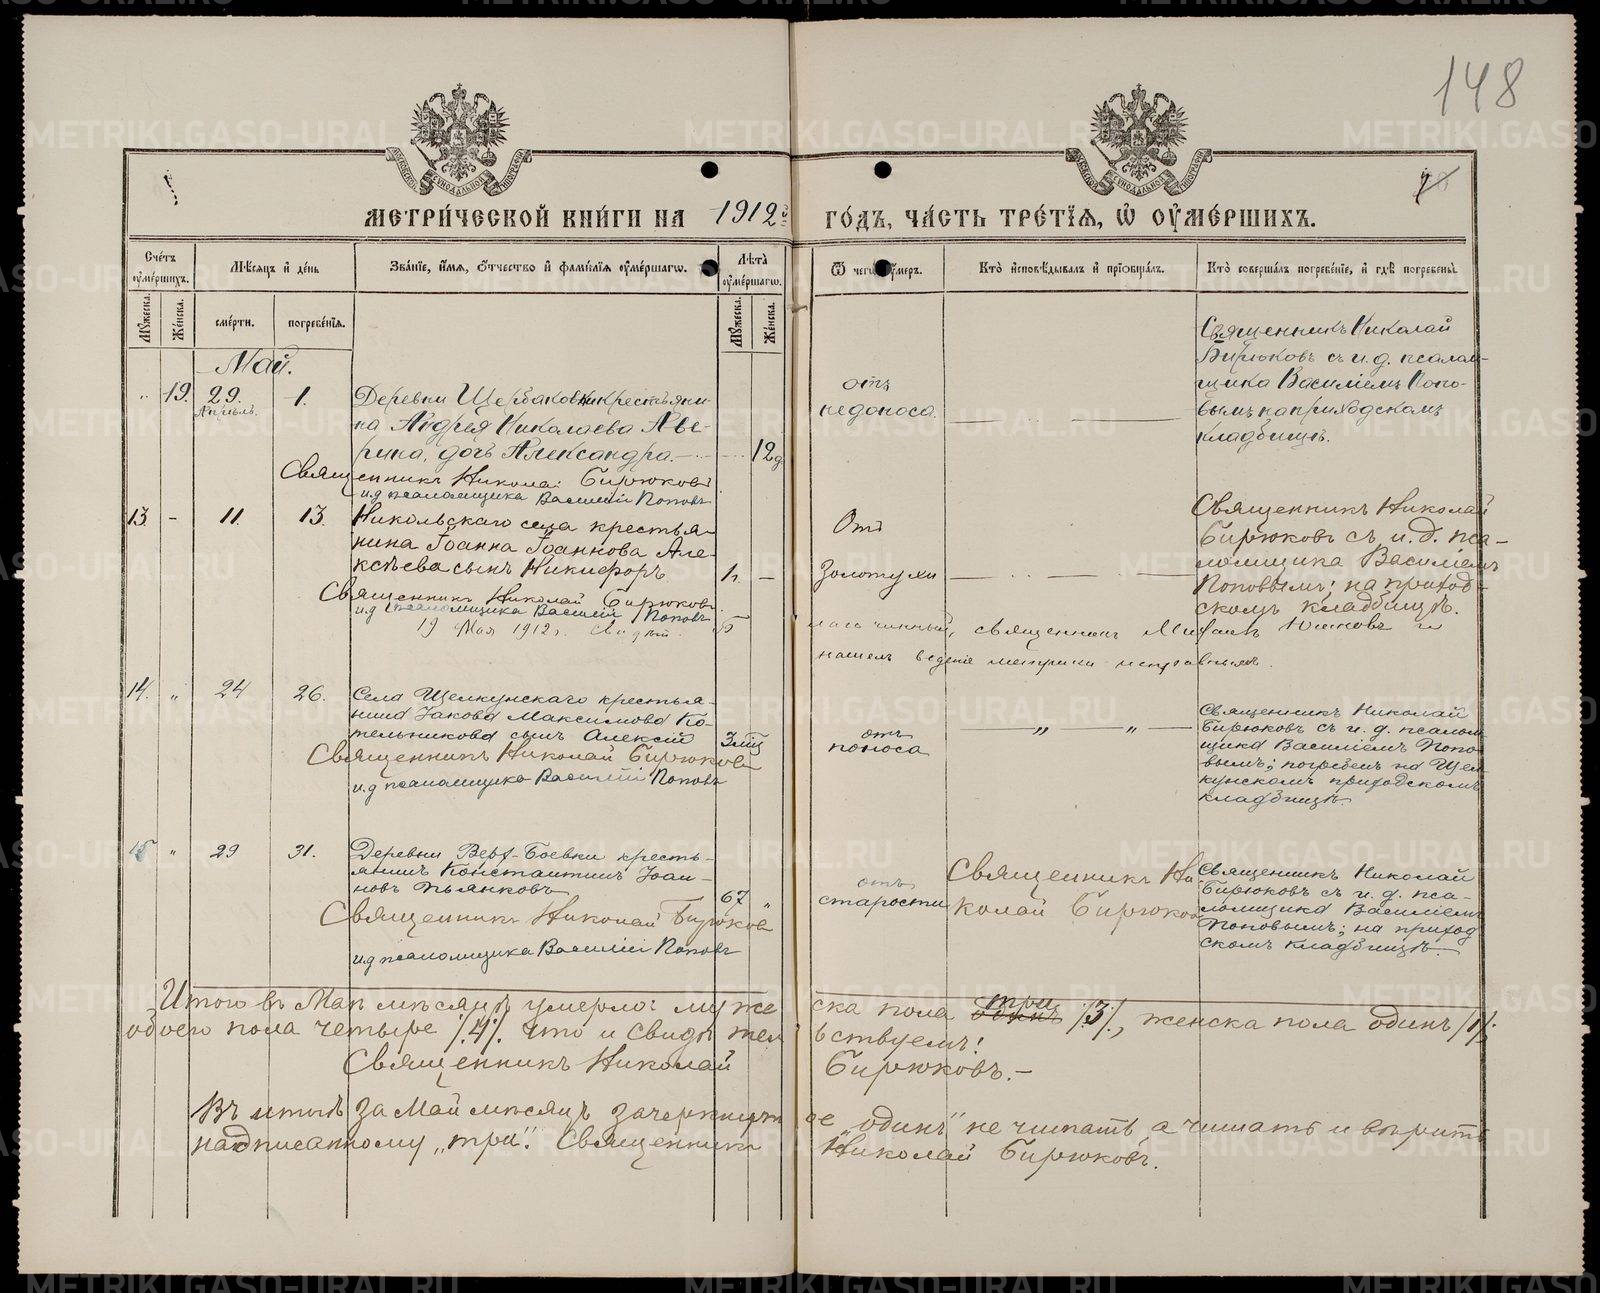 148
МЕТРИЧЕСКОЙ КНИГИ НА 1912 й
ГОДЪ, ЧАСТЬ ТРЕТІЯ, Ѿ ОУМЕРШИХЪ.
Счетъ оумершихъ.
Мѣсяцъ и день
Званіе, имя, отчество и фамилія оумершагω.
Лѣта оумершагω.
Мужеска.
Женска.
смерти.
погребенія.
Мужеска.
Женска.
Ѿ чегω умеръ.
Кто исповѣдывалъ и пріобщалъ.
Кто совершалъ погребеніе, и гдѣ погребены.
Май.
19. 29. Апрѣль. 1.
Деревни Щербаковки крестьяни-
на Андрея Николаева Аве-
рина, дочь Александра. 12 д
Священникъ Николай Бирюковъ
и.д псаломщика Василій Поповъ
отъ
недоноса.
Священникъ Николай
Бирюковъ съ и. д. псалом-
щика Василіемъ Попо-
вымъ на приходскомъ
кладбищѣ.
13 - 11. 13.
Никольскаго села крестья-
нина Іоанна Іоаннова Але-
ксѣева сынъ Никифоръ 1 г. -
Священникъ Николай Бирюковъ
и.д псаломщика Василій Поповъ
Отъ
Золотухи
Священникъ Николай
Бирюковъ съ и. д. пса-
ломщика Василіемъ
Поповымъ; на приход-
скомъ кладбищѣ.
19 Мая 1912 г.
чинный, священникъ Михаилъ
нашелъ веденіе метрики исправнымъ.
14. " 24 26.
Села Щелкунскаго крестья-
нина Іакова Максимова Ко-
тельникова сынъ Алексій 3 мѣс
Священникъ Николай Бирюковъ
и.д псаломщика Василій Поповъ
отъ
поноса
Священникъ Николай
Бирюковъ съ и. д. псалом-
щика Василіемъ Попо-
вымъ; погребенъ на Щел-
кунскомъ приходскомъ
кладбищѣ
15 " 29 31.
Деревни Верх-Боевки кресть-
янинъ Константинъ Іоан-
новъ Пьянковъ 67 "
Священникъ Николай Бирюковъ
и.д псаломщика Василій Поповъ
отъ
старости
Священникъ Ни-
колай Бирюковъ
Священникъ Николай
Бирюковъ съ и. д. пса-
ломщика Василіемъ
Поповымъ; на приход
скомъ кладбищѣ.
Итого въ Маѣ мѣсяцѣ умерло: мужеска пола одинъ три /3/, женска пола одинъ /1/;
обоего пола четыре /4/. Что и свидѣтельствуемъ!
Священникъ Николай Бирюковъ.-
Въ итогѣ за Май мѣсяцъ зачеркнутое „одинъ" не читать, а читать и вѣрить
надписанному „три". Священникъ Николай Бирюковъ.
METRIKI.GASO-URAL.RU